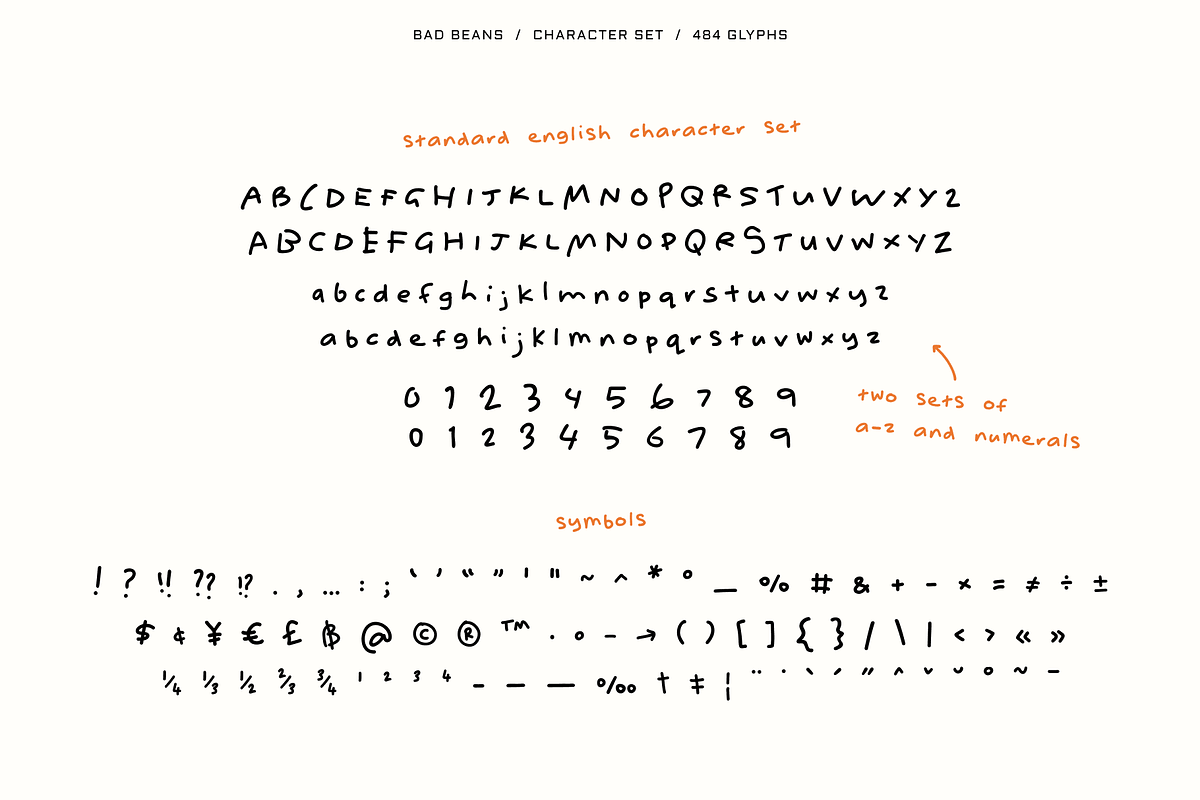 BAD BEANS / CHARACTER SET / 484 GLYPHS
standard english character set
A B C D E F G H I J K L M N O P Q R S T U V W X Y Z
A B C D E F G H I J K L M N O P Q R S T U V W X Y Z
a b c d e f g h i j k l m n o p q r s t u v w x y z
a b c d e f g h i j k l m n o p q r s t u v w x y z
0 1 2 3 4 5 6 7 8 9
0 1 2 3 4 5 6 7 8 9
two sets of
a-z and numerals
symbols
! ? !! ?? !? . , … : ; ‘ ’ “ ” ' " ~ ^ * ° _ % # & + - × = ≠ ÷ ±
$ ¢ ¥ € £ ₿ @ © ® ™ · ∘ - → ( ) [ ] { } / \ | < > « »
¼ ⅓ ½ ⅔ ¾ ¹ ² ³ ⁴ - – — ‰ † ‡ ¦ ¨ ˙ ` ´ ˝ ^ ˇ ˘ ° ~ ¯